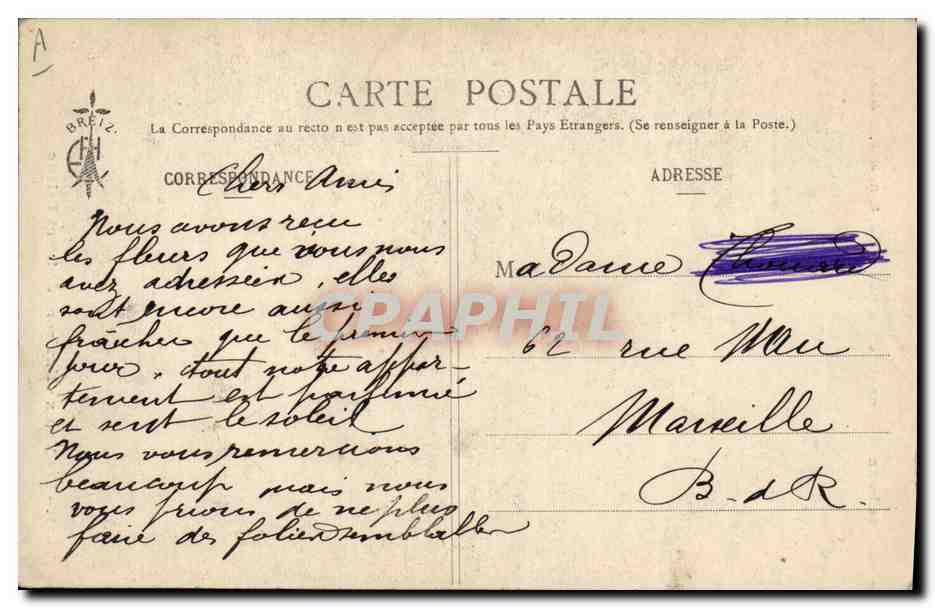 A
BREIZ.
CARTE POSTALE
La Correspondance au recto n est pas acceptée par tous les Pays Etrangers. (Se renseigner à la Poste.)
CORRESPONDANCE
ADRESSE
Chers Amis
Nous avons reçu
les fleurs que vous nous
avez adressées, elles
sont encore aussi
fraîches que le premier
jour, tout notre appar-
tement est parfumé
et sent le soleil
Nous vous remercions
beaucoup mais nous
vous prions de ne plus
faire des folies semblables
Madame
62 rue
Marseille
B-d R.
CPAPHIL